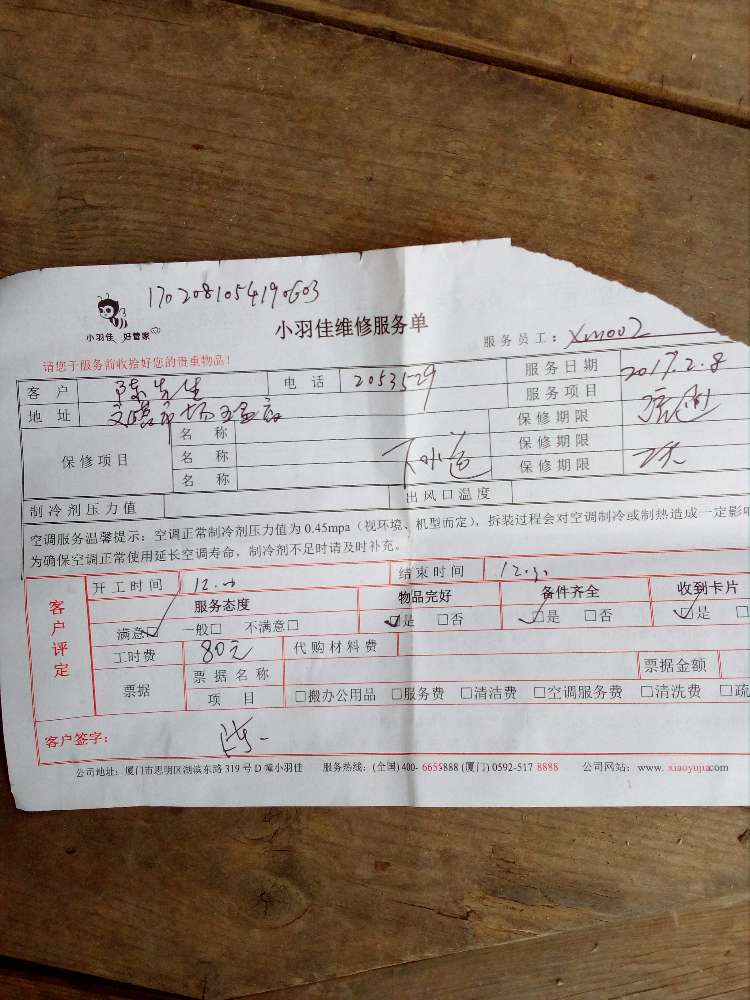 1702081054190603
小羽佳 好管家
小羽佳维修服务单
服务员工：XM002
请您于服务前收拾好您的贵重物品！
客 户 陈先生 电 话 2053529 服务日期 2017.2.8
地 址 服务项目
保修项目 名 称 保修期限
名 称 下水道 保修期限
名 称 保修期限
制冷剂压力值 出风口温度
空调服务温馨提示：空调正常制冷剂压力值为 0.45mpa（视环境、机型而定），拆装过程会对空调制冷或制热造成一定影响
为确保空调正常使用延长空调寿命，制冷剂不足时请及时补充。
客户评定
开工时间 12.00 结束时间 12.30
服务态度 物品完好 备件齐全 收到卡片
满意☑ 一般□ 不满意□ ☑是 □否 ☑是 □否 ☑是 □
工时费 80元 代购材料费
票据 票据名称 票据金额
项 目 □搬办公用品 □服务费 □清洁费 □空调服务费 □清洗费 □疏
客户签字： 陈
公司地址：厦门市思明区湖滨东路 319 号 D 幢小羽佳 服务热线：(全国) 400- 6655888 (厦门) 0592-517 8888 公司网站：www. xiaoyujia.com
1